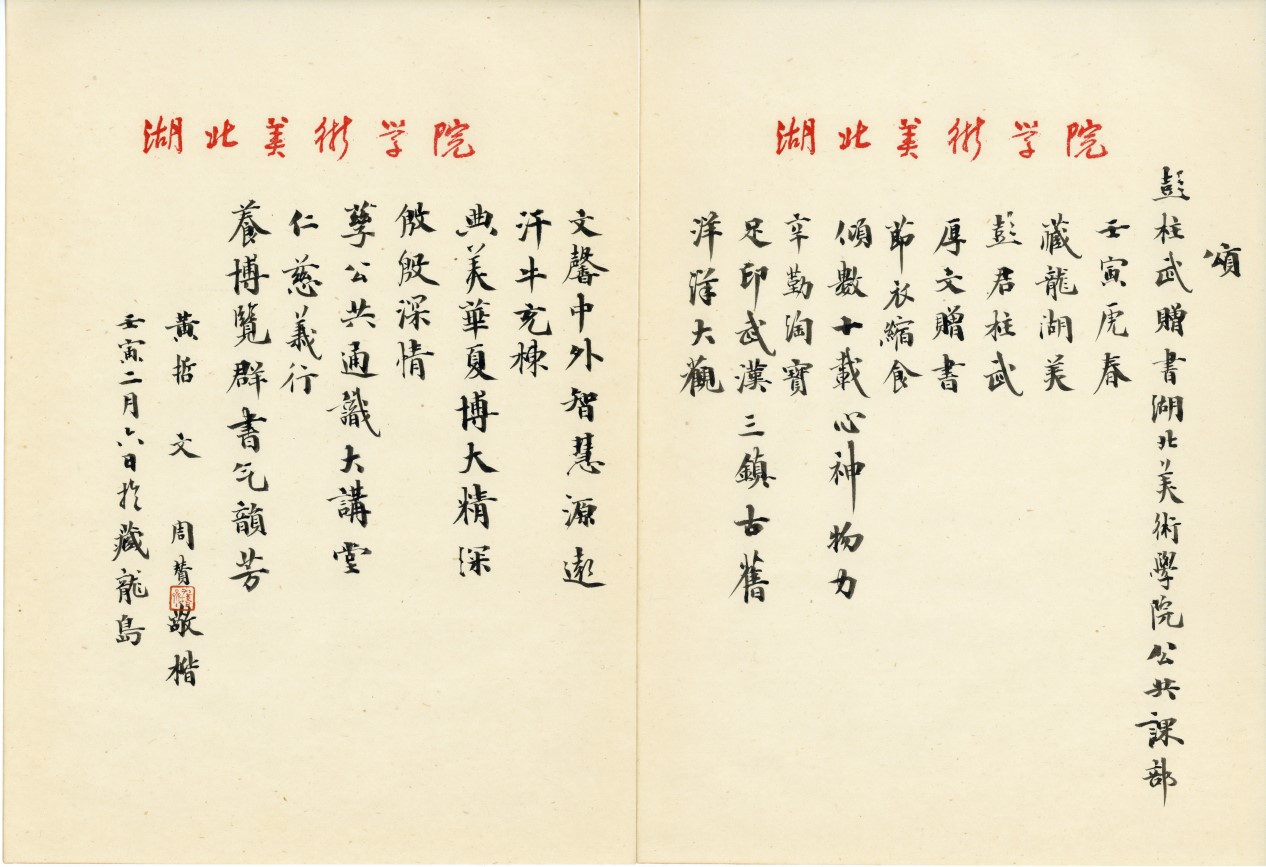 湖北美术学院
頌
彭柱武贈書湖北美術學院公共課部
壬寅虎春
藏龍湖美
彭君柱武
厚文贈書
節衣縮食
傾數十載心神物力
辛勤淘寶
足印武漢三鎮古舊
洋洋大觀
湖北美术学院
文馨中外智慧源遠
汗牛充棟
典美華夏博大精深
殷殷深情
孳公共通識大講堂
仁慈義行
養博覽群書气韻芳
黃哲 文 周贊敬楷
壬寅二月六日於藏龍島